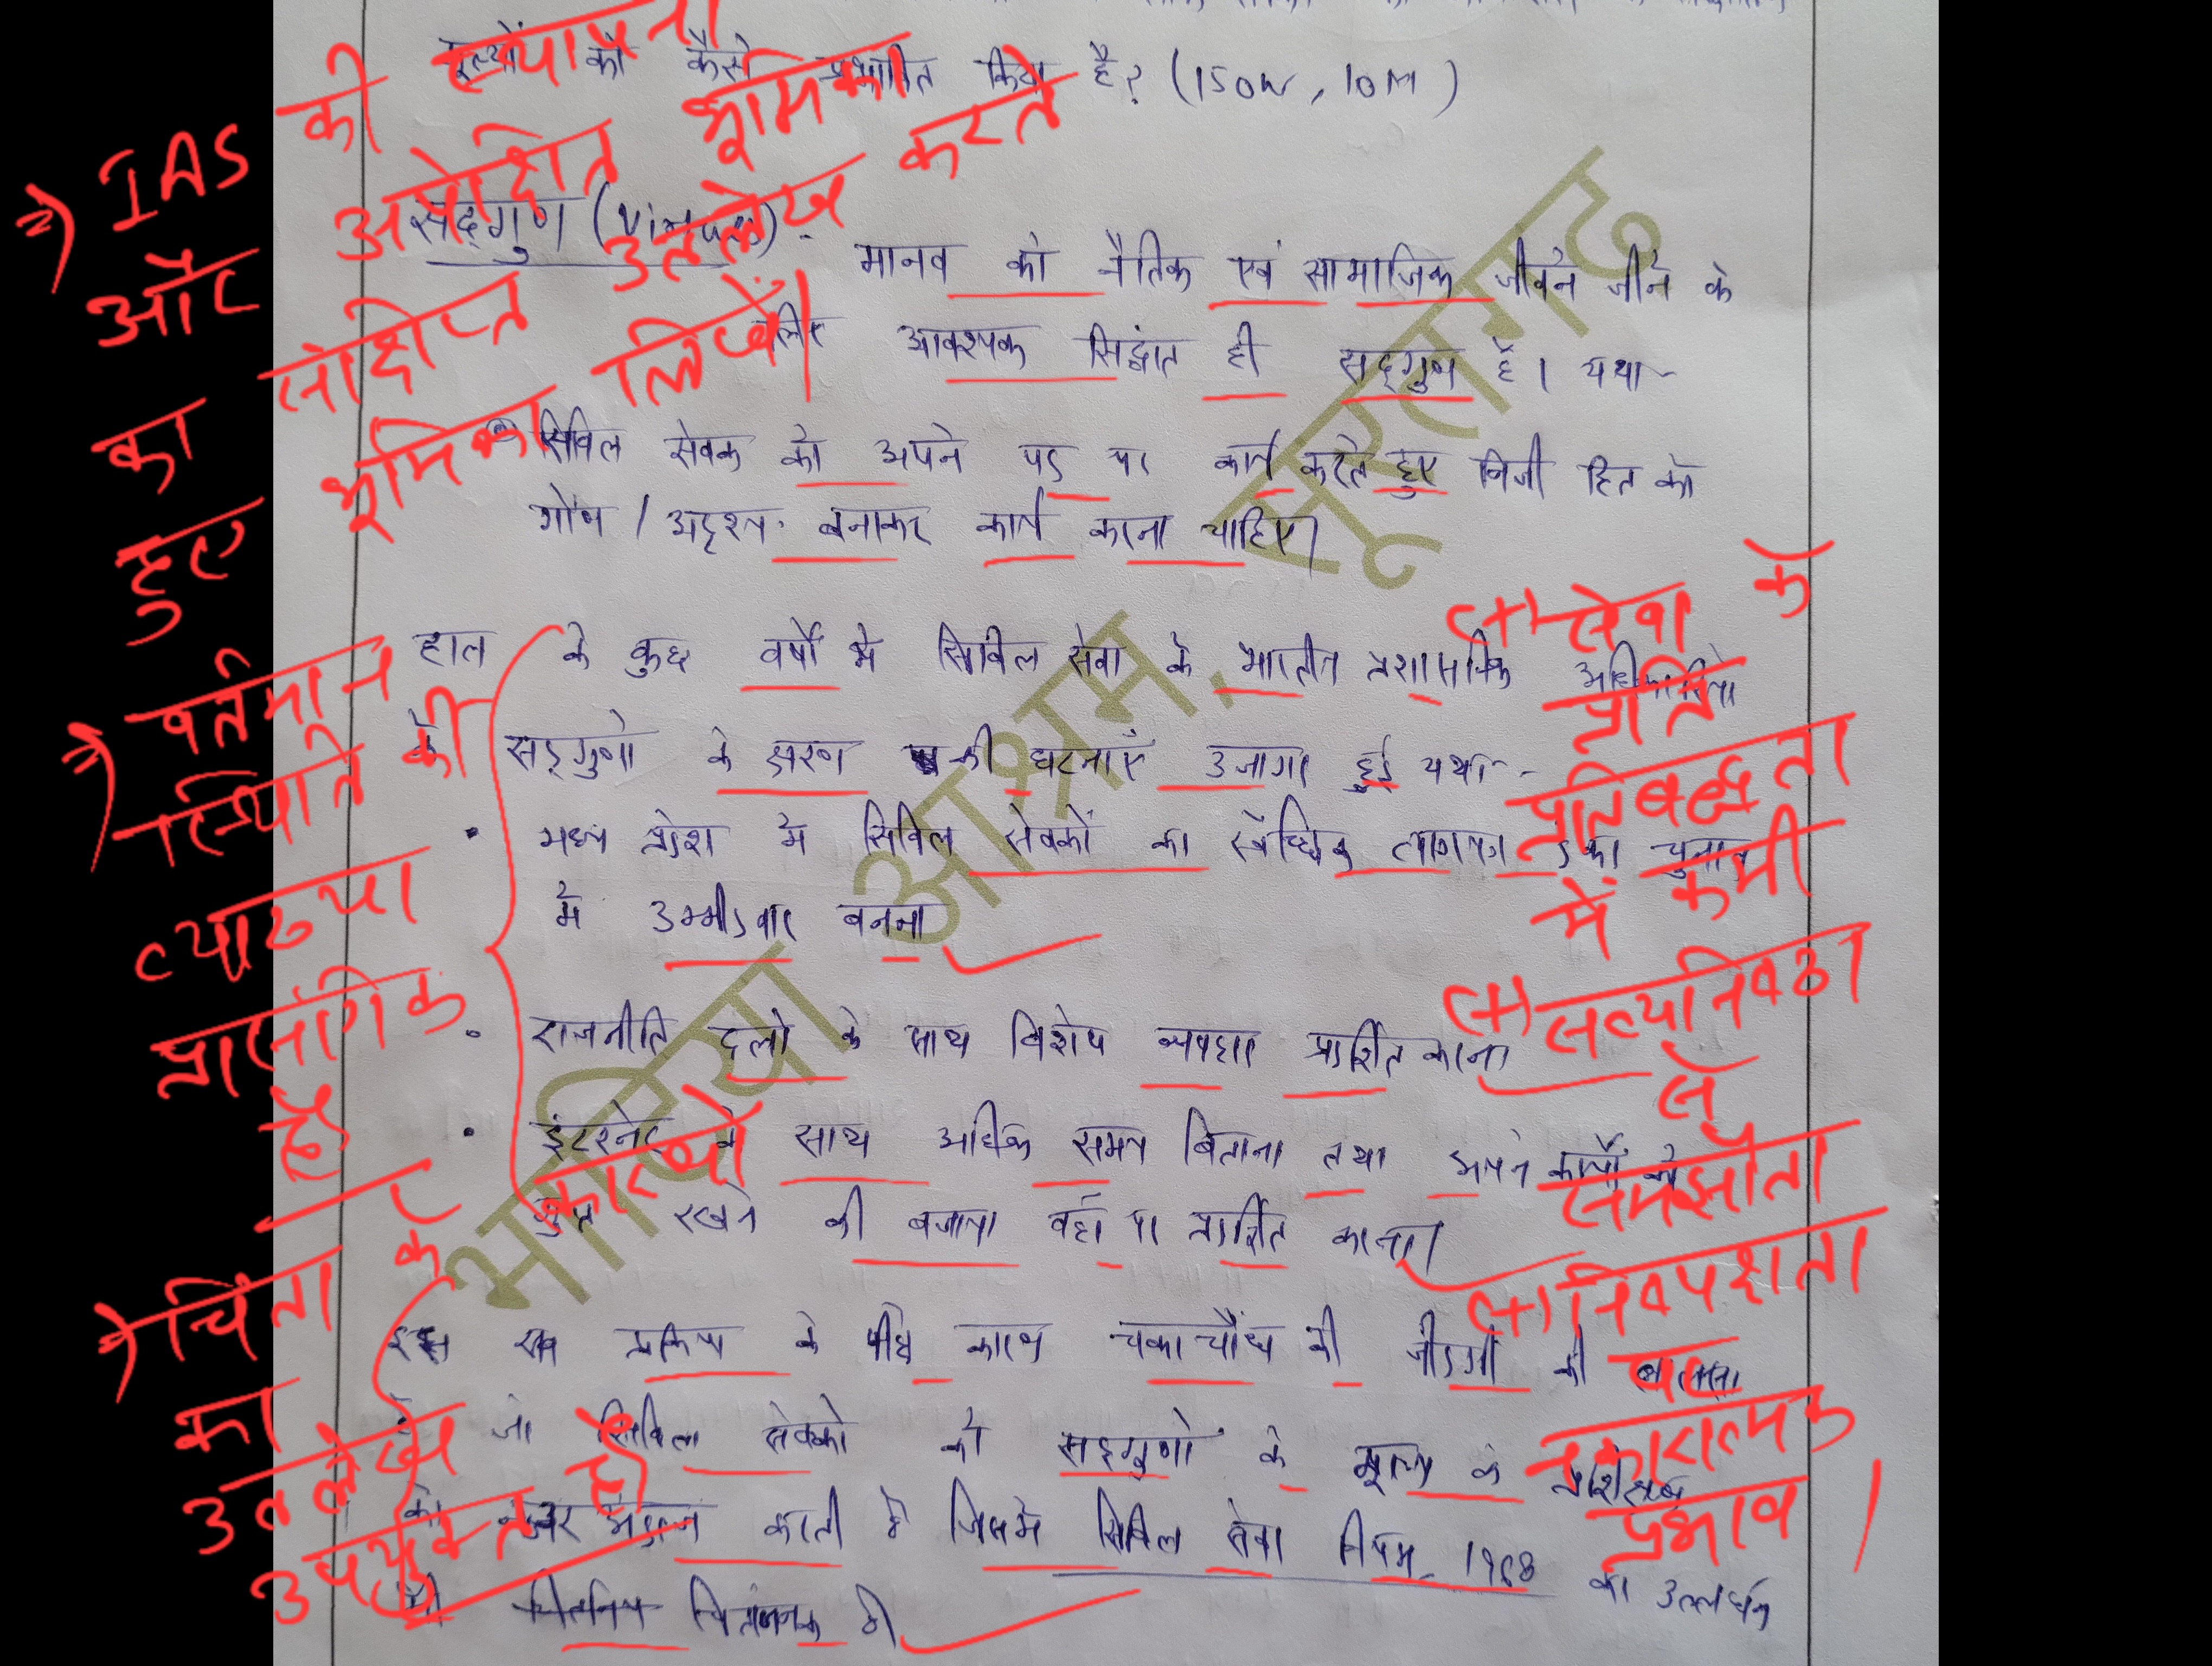 को कैसे प्रभावित किया है? (150W, 10M)
सद्गुण (Virtue) -
मानव को नैतिक एवं सामाजिक जीवन जीने के
लिए आवश्यक सिद्धांत ही सद्गुण है। यथा-
सिविल सेवक को अपने पद पर कार्य करते हुए निजी हित को
गौण / अदृश्य बनाकर कार्य करना चाहिए।
हाल के कुछ वर्षों में सिविल सेवा के भारतीय प्रशासनिक अधिकारियों
सद्गुणों के क्षरण की घटनाएँ उजागर हुई यथा-
• मध्य प्रदेश में सिविल सेवकों का स्वैच्छिक त्यागपत्र देकर चुनाव
में उम्मीदवार बनना
• राजनीति दलों के साथ विशेष व्यवहार प्रदर्शित करना
• इंटरनेट के साथ अधिक समय बिताना तथा अपने कार्यों को
गुप्त रखने की बजाय वहाँ पर प्रदर्शित करना।
इस प्रक्रिया के पीछे कारण चकाचौंध की जीदगी की लालसा
है जो सिविल सेवकों को सद्गुणों के मूल्य के प्रशिक्षण
को नजर अंदाज करती है जिसमें सिविल सेवा नियम, 1968 का उल्लंघन
भी चिंतनिय चिंताजनक है।
⇒ IAS की स्थापना
और अपेक्षित भूमिका
का संक्षिप्त उल्लेख करते
हुए भूमिका लिखें।
⇒ वर्तमान
स्थिति की
व्याख्या
प्रासंगिक
है।
⇒ चिंता के
कारणों
का
उल्लेख
उपयुक्त है।
(+) सेवा के
प्रति
प्रतिबद्धता
में कमी
(+) सत्यनिष्ठा
से
समझौता
(+) निष्पक्षता
पर
नकारात्मक
प्रभाव।
भाविया आश्रम, सूरतगढ़